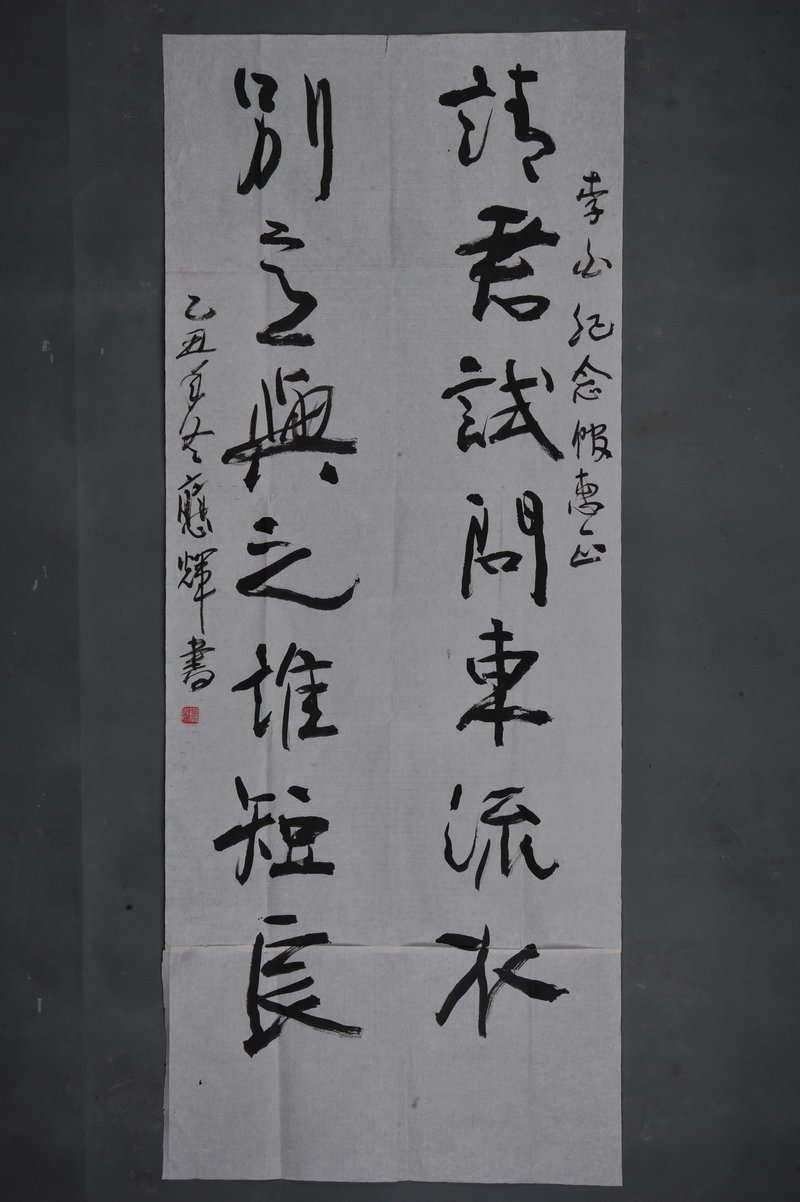 李白紀念館惠正
請君試問東流水
別意與之誰短長
乙丑年冬應輝書